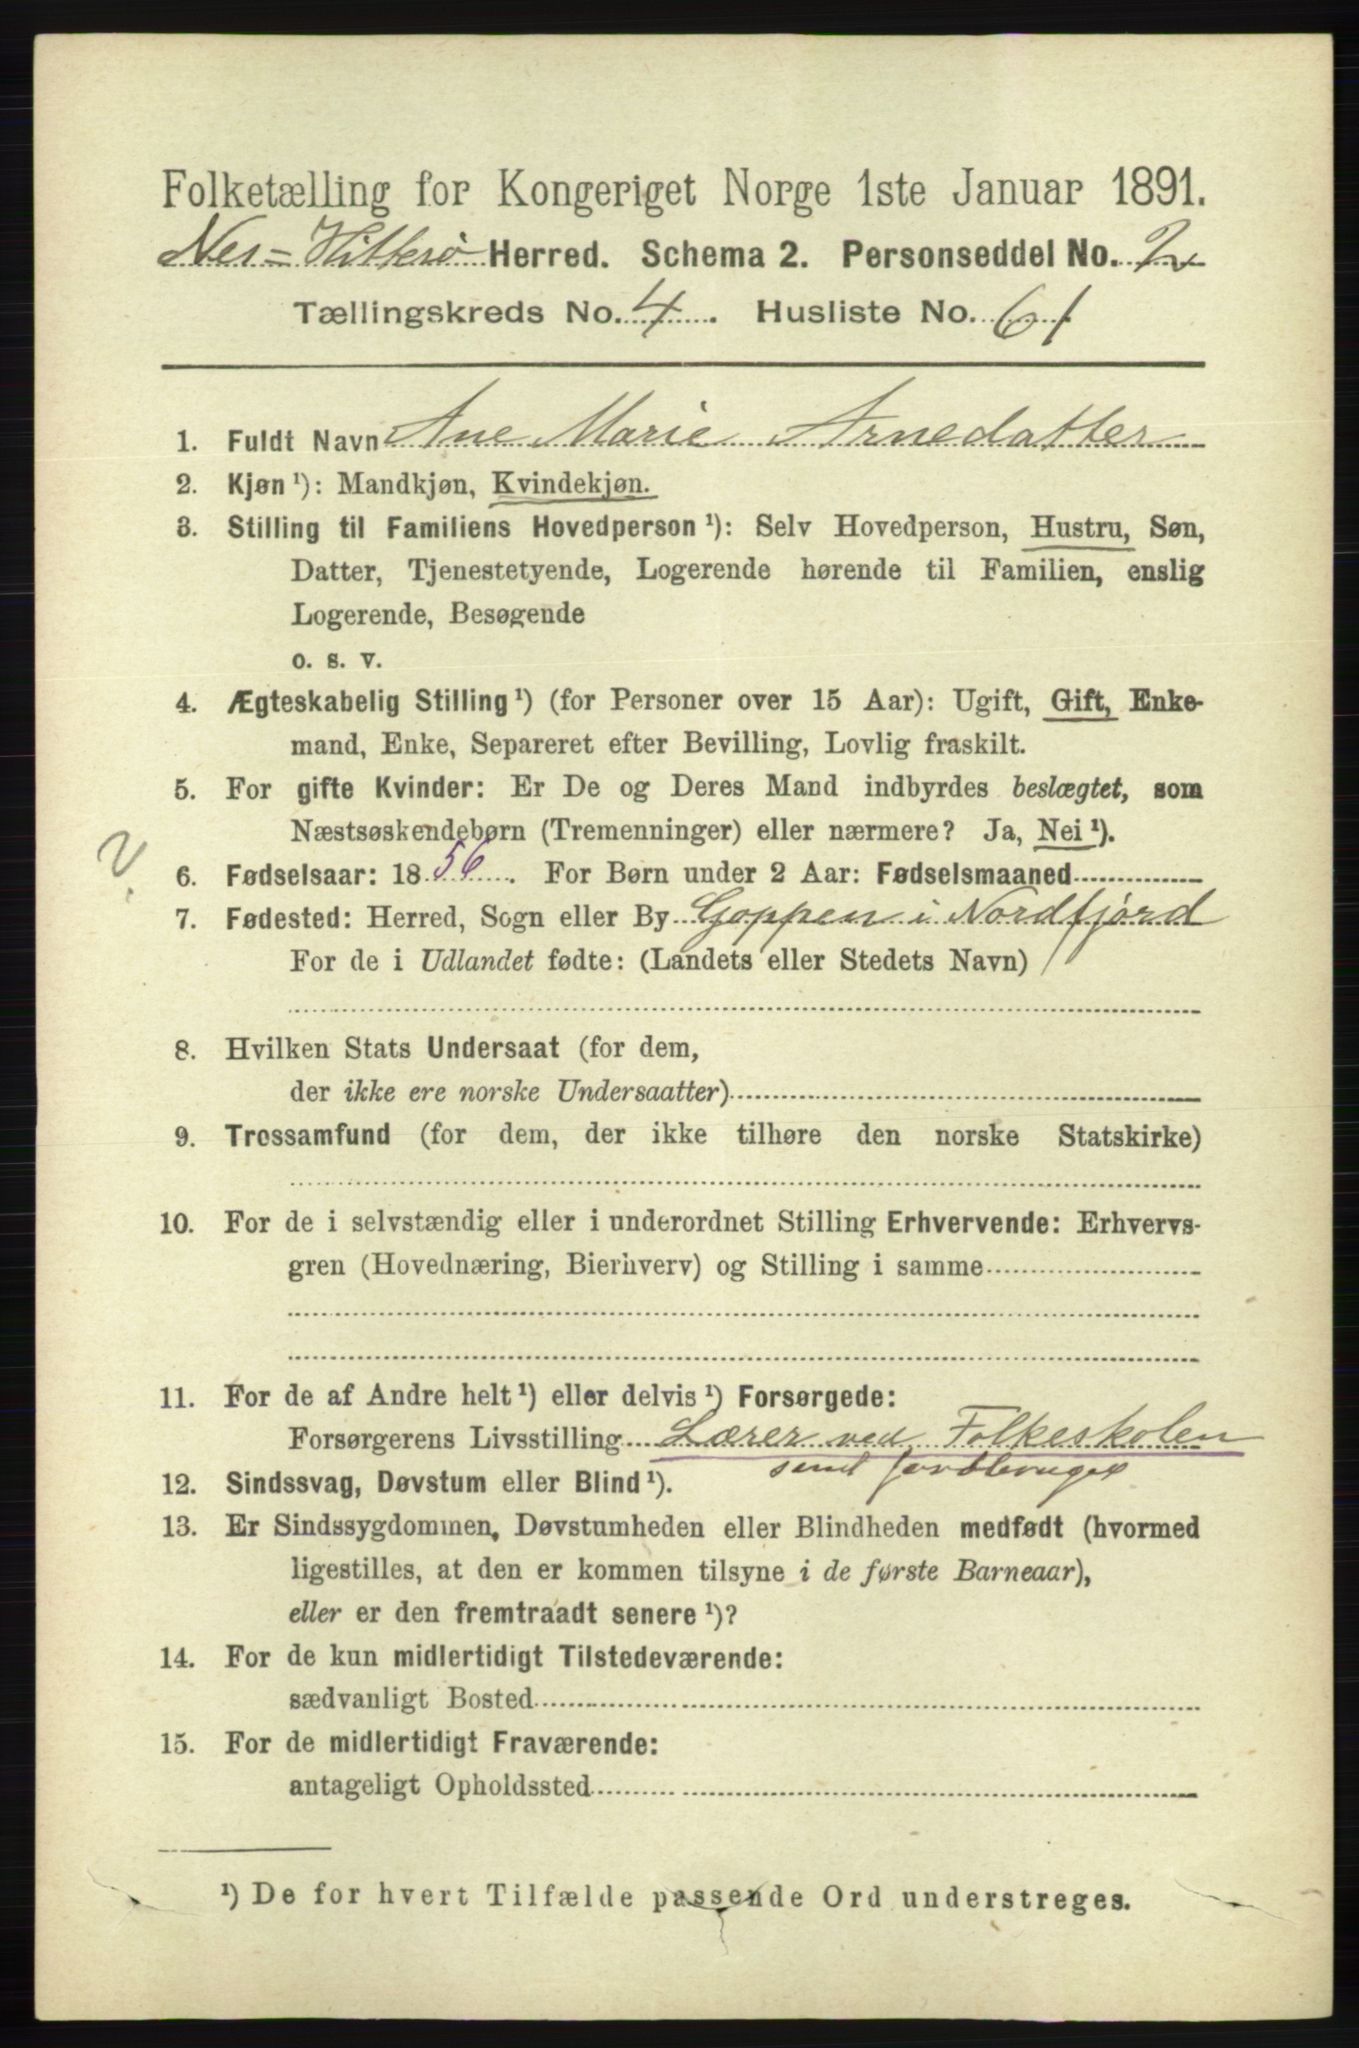 Folketælling for Kongeriget Norge 1ste Januar 1891.
Nes-Hitterø Herred. Schema 2. Personseddel No. 2
Tællingskreds No. 4. Husliste No. 61
1. Fuldt Navn Ane Marie Arnedatter
2. Kjøn ¹): Mandkjøn, Kvindekjøn.
3. Stilling til Familiens Hovedperson ¹): Selv Hovedperson, Hustru, Søn,
Datter, Tjenestetyende, Logerende hørende til Familien, enslig
Logerende, Besøgende
o. s. v.
4. Ægteskabelig Stilling ¹) (for Personer over 15 Aar): Ugift, Gift, Enke-
mand, Enke, Separeret efter Bevilling, Lovlig fraskilt.
5. For gifte Kvinder: Er De og Deres Mand indbyrdes beslægtet, som
Næstsøskendebørn (Tremenninger) eller nærmere? Ja, Nei ¹).
6. Fødselsaar: 1856. For Børn under 2 Aar: Fødselsmaaned
7. Fødested: Herred, Sogn eller By Goppen i Nordfjord
For de i Udlandet fødte: (Landets eller Stedets Navn)
8. Hvilken Stats Undersaat (for dem,
der ikke ere norske Undersaatter)
9. Trossamfund (for dem, der ikke tilhøre den norske Statskirke)
10. For de i selvstændig eller i underordnet Stilling Erhvervende: Erhvervs-
gren (Hovednæring, Bierhverv) og Stilling i samme
11. For de af Andre helt ¹) eller delvis ¹) Forsørgede:
Forsørgerens Livsstilling Lærer ved Folkeskolen
samt jordbruger
12. Sindssvag, Døvstum eller Blind ¹).
13. Er Sindssygdommen, Døvstumheden eller Blindheden medfødt (hvormed
ligestilles, at den er kommen tilsyne i de første Barneaar),
eller er den fremtraadt senere ¹)?
14. For de kun midlertidigt Tilstedeværende:
sædvanligt Bosted
15. For de midlertidigt Fraværende:
antageligt Opholdssted
¹) De for hvert Tilfælde passende Ord understreges.